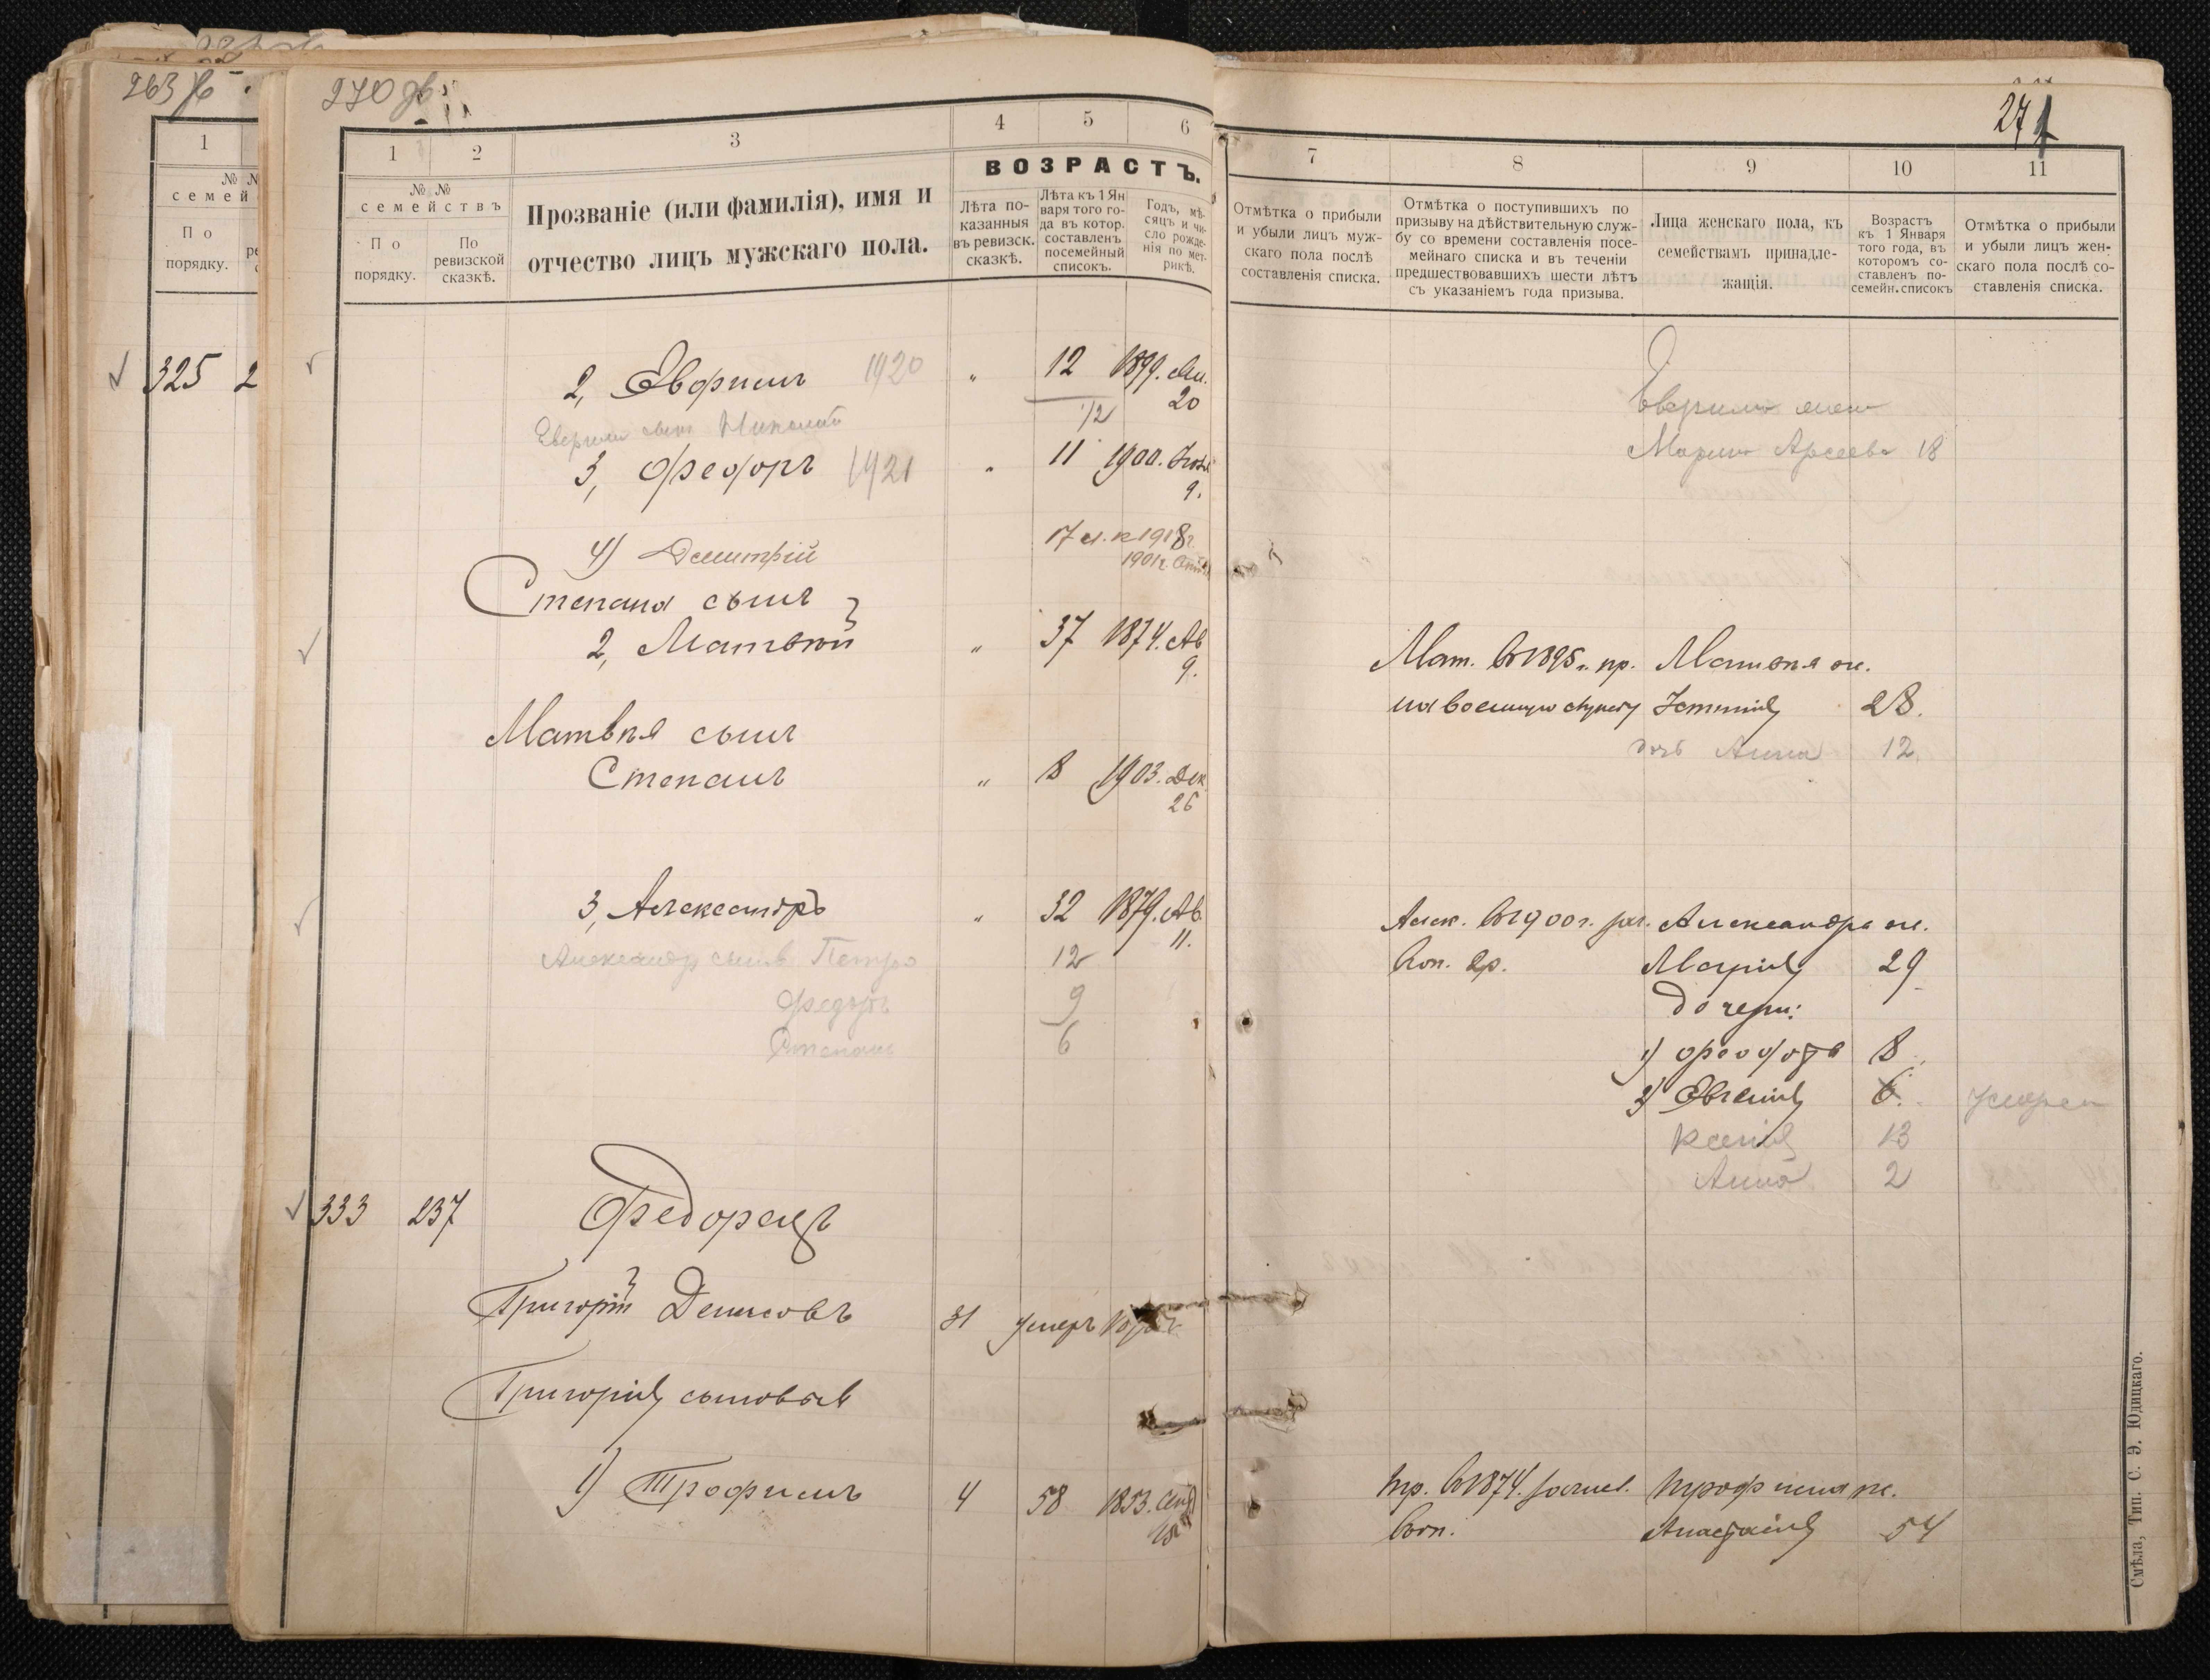 263
1
№ №
семей
По
порядку.
325 2
270 об
1 2 3 4 5 6
№ №
семействъ
По
порядку.
По
ревизской
сказкѣ.
Прозваніе (или фамилія), имя и
отчество лицъ мужскаго пола.
ВОЗРАСТЪ.
Лѣта по-
казанныя
въ ревизск.
сказкѣ.
Лѣта къ 1 Ян
варя того го-
да въ котор.
составленъ
посемейный
списокъ.
Годъ, мѣ-
сяцъ и чи-
сло рожде-
нія по мет-
рикѣ.
2, Евфимъ 1920 „ 12 1899.
20
12
сынъ Николай
3, Феодоръ 1921 „ 11 1900.
9.
4) Димитрій 17 л. к 1918 г.
1901 г.
Степана сынъ
2, Матвѣй „ 37 1874. Ав
9.
Матвѣя сынъ
Степанъ „ 8 1903. Дек.
26
3, Александръ „ 32 1879. Ав.
11.
Александр сынъ Петро 12
Федоръ 9
Степанъ 6
333 237 Федорецъ
Григорій Денисовъ 31 умеръ
Григорія сыновья
1) Трофимъ 4 58 1853. Сент
271
7 8 9 10 11
Отмѣтка о прибыли
и убыли лицъ муж-
скаго пола послѣ
составленія списка.
Отмѣтка о поступившихъ по
призыву на дѣйствительную служ-
бу со времени составленія посе-
мейнаго списка и въ теченіи
предшествовавшихъ шести лѣтъ
съ указаніемъ года призыва.
Лица женскаго пола, къ
семействамъ принадле-
жащія.
Возрастъ
къ 1 Января
того года, въ
которомъ со-
ставленъ по-
семейн. списокъ
Отмѣтка о прибыли
и убыли лицъ жен-
скаго пола послѣ со-
ставленія списка.
жена
Мария 18
Мат. въ 1895 г. пр. Матвѣя ж.
на военную службу Устинія 28.
дочь Анна 12
Алек. въ 1900 г. зач. Александра ж.
въ оп. 2 р. Марія 29
дочери:
1) Феодора 8
2) Евгенія 6. умерла
Ксенія 13
Анна 2
Тр. въ 1874. зачисл. Трофима ж.
въ оп. Анастасія 54
Смѣла, Тип. С. Э. Юдицкаго.